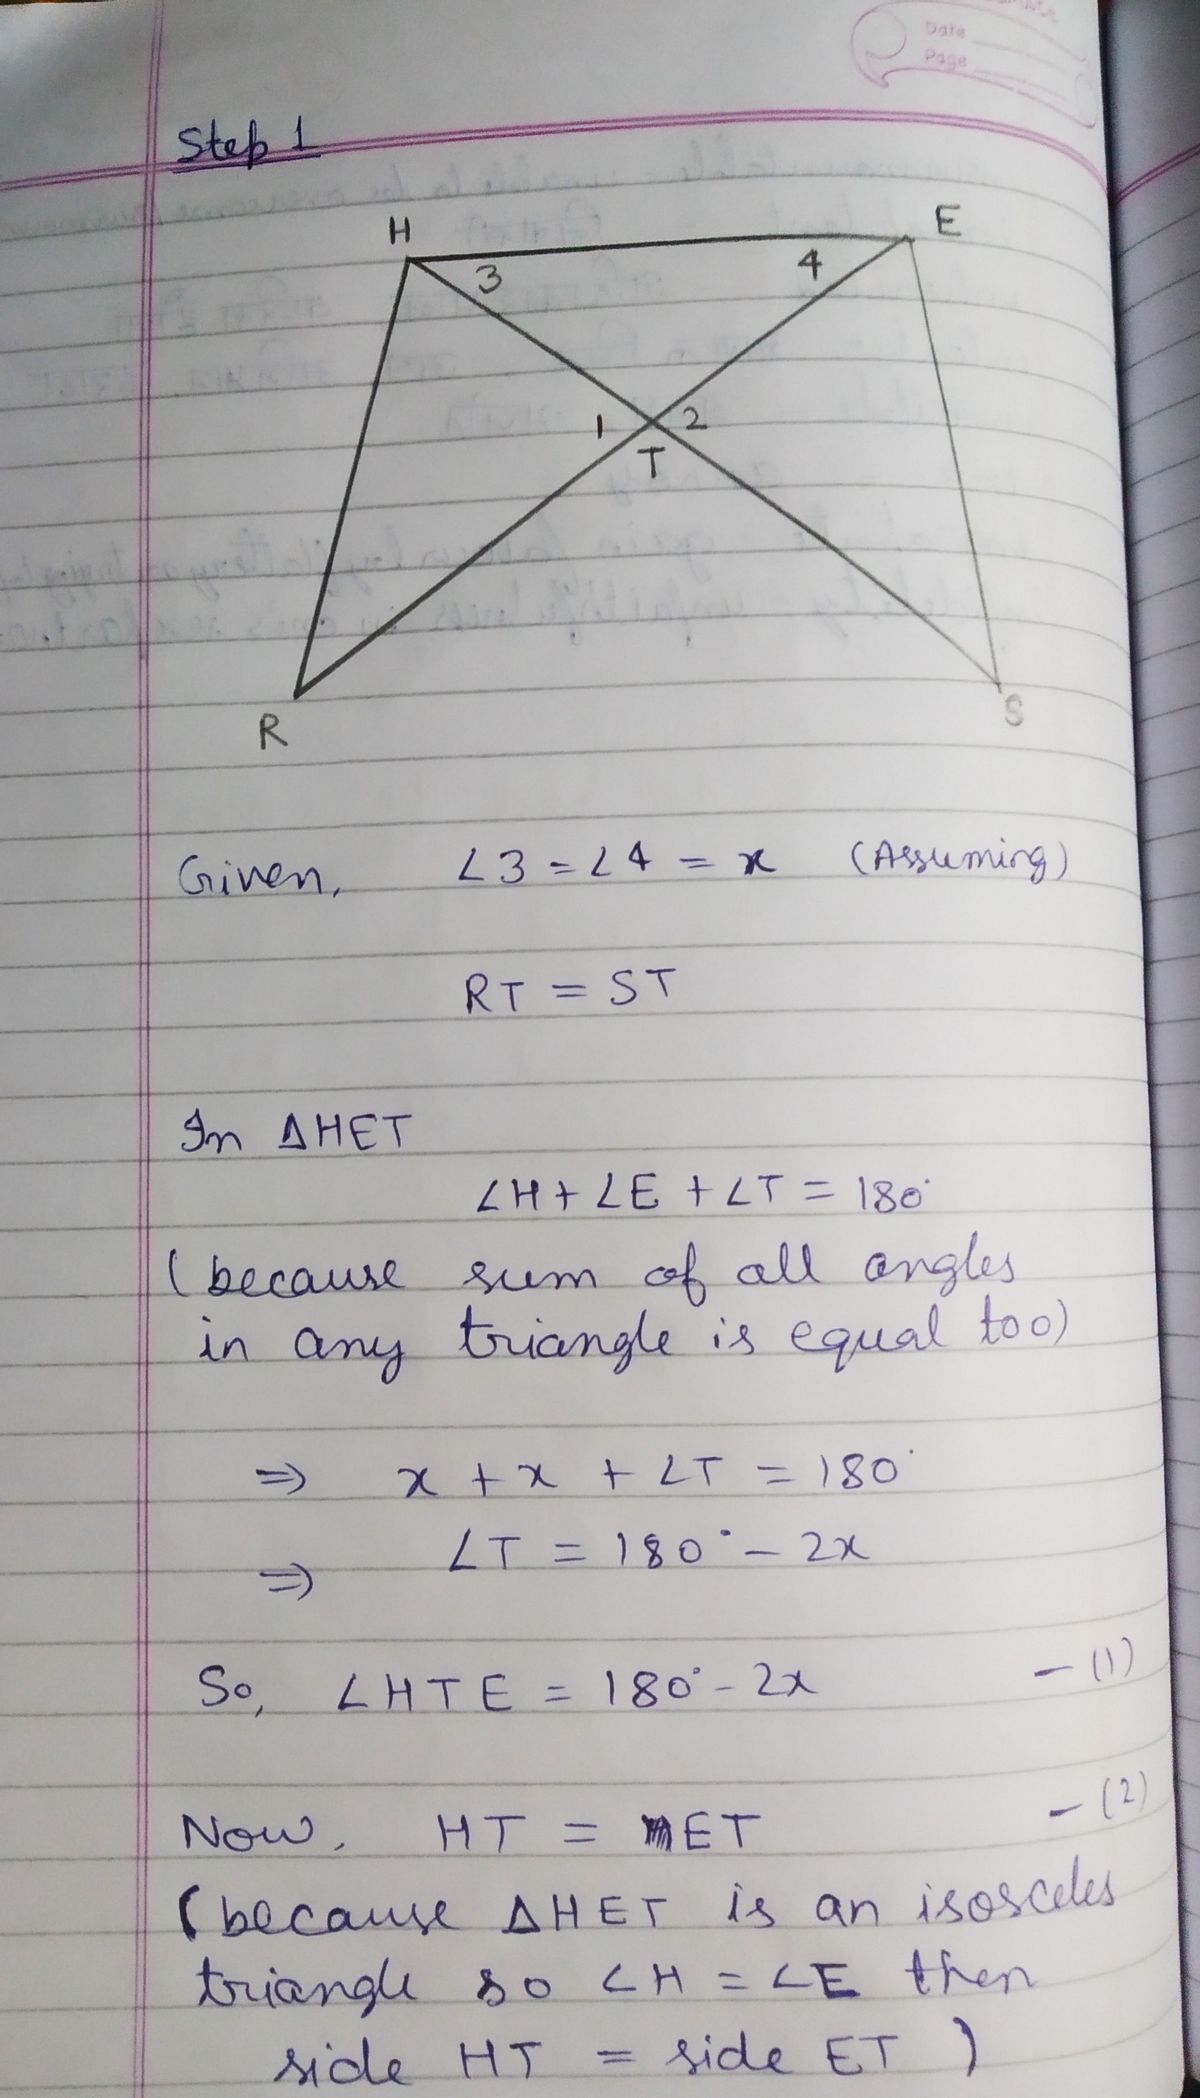 Date
Page
Step 1
H
E
3
4
1
2
T
R
S
Given, ∠3 = ∠4 = x (Assuming)
RT = ST
In ΔHET
∠H + ∠E + ∠T = 180°
(because sum of all angles
in any triangle is equal too)
⇒ x + x + ∠T = 180°
⇒ ∠T = 180° - 2x
So, ∠HTE = 180° - 2x - (1)
Now, HT = ET - (2)
(because ΔHET is an isosceles
triangle so ∠H = ∠E then
side HT = side ET)